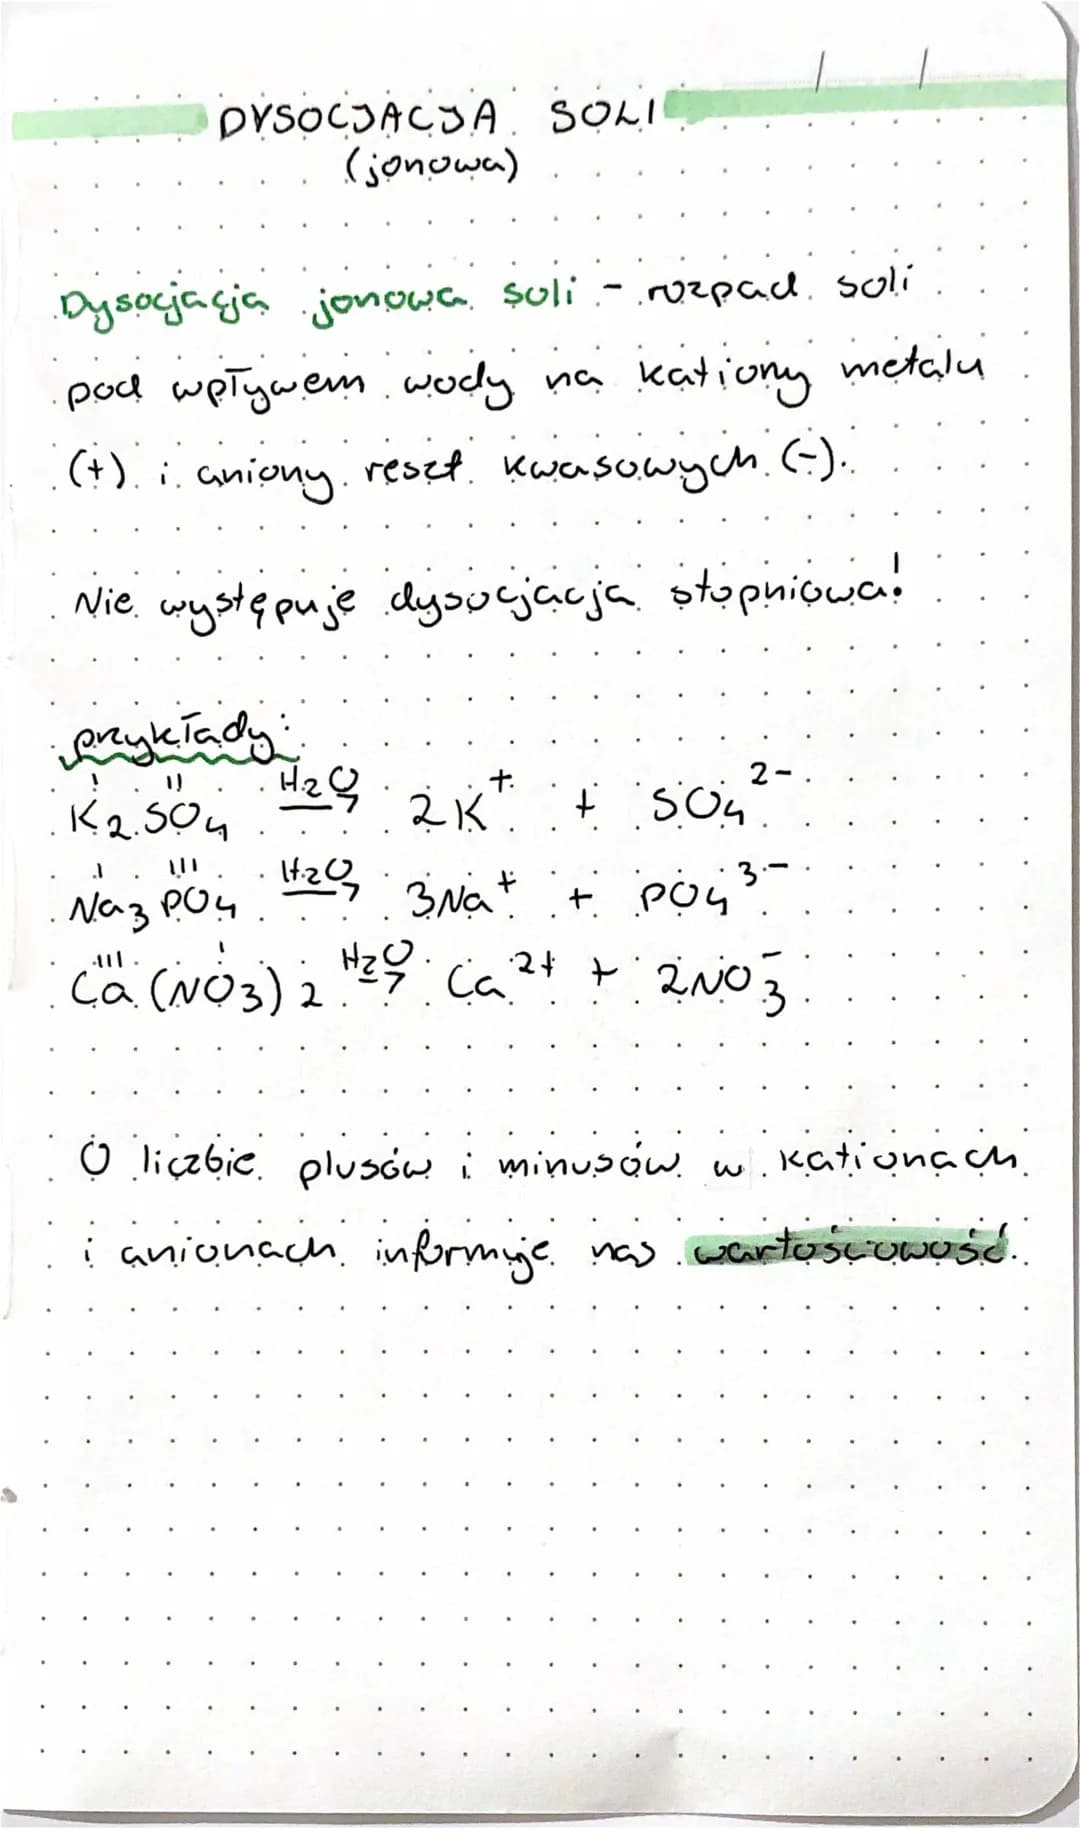 DYSOCJACJA SOLI
(jonowa)
Dysocjacja jonowa soli - rozpad soli
pod wpływem wody na kationy metalu
(+) i aniony reszt kwasowych (-).
Nie występuje dysocjacja stopniowa!
przykłady:
I II
K₂SO₄ H₂O→ 2K⁺ + SO₄²⁻
I III
Na₃PO₄ H₂O→ 3Na⁺ + PO₄³⁻
III I
Ca(NO₃)₂ H₂O→ Ca²⁺ + 2NO₃⁻
O liczbie plusów i minusów w kationach
i anionach informuje nas wartościowość.